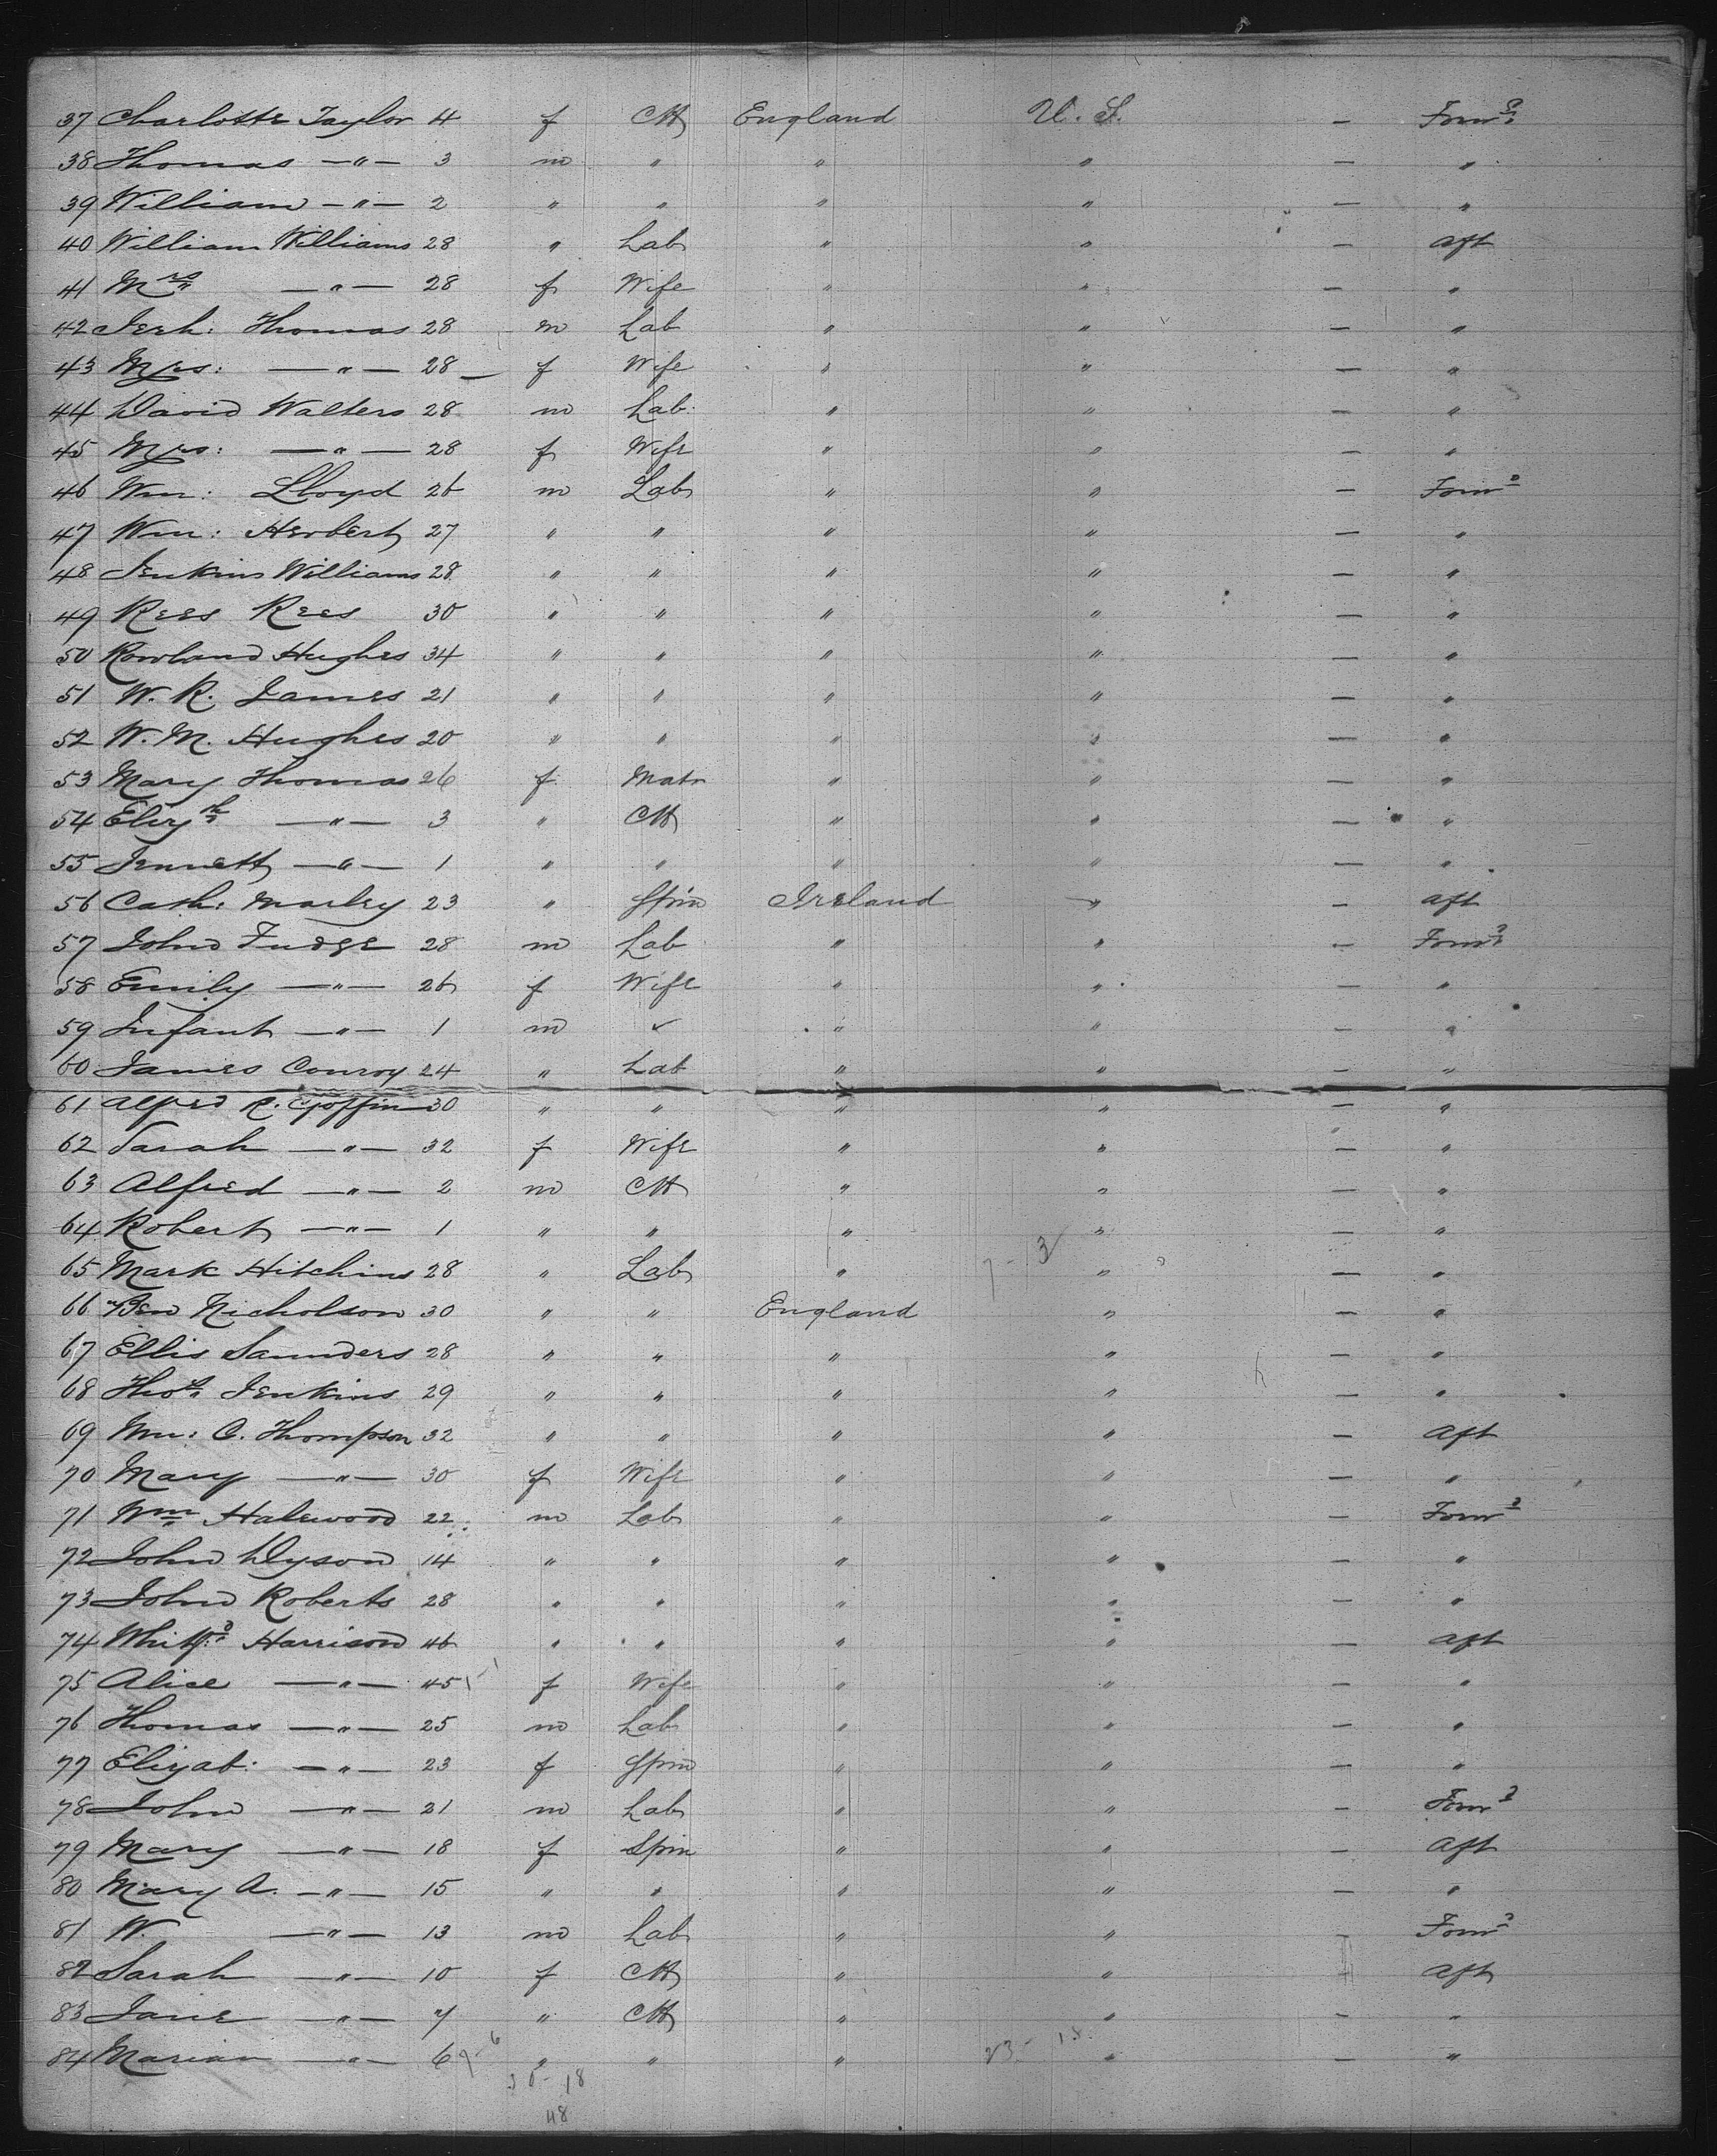 37 Charlotte Taylor 4 f Ch England U. S. — Forwd
38 Thomas —"— 3 m " " " — "
39 William —"— 2 " " " " — "
40 William Williams 28 " Lab " " — aft
41 Mrs —"— 28 f Wife " " — "
42 Jerh: Thomas 28 m Lab " " — "
43 Mrs: —"— 28 f Wife " " — "
44 David Walters 28 m Lab: " " — "
45 Mrs: —"— 28 f Wife " " — "
46 Wm: Lloyd 26 m Lab " " — Forwd
47 Wm: Herbert 27 " " " " — "
48 Jenkins Williams 28 " " " " — "
49 Rees Rees 30 " " " " — "
50 Rowland Hughes 34 " " " " — "
51 W. R. James 21 " " " " — "
52 W. M. Hughes 20 " " " " — "
53 Mary Thomas 26 f Matr " " — "
54 Elizth —"— 3 " Ch " " — "
55 Jennett —"— 1 " " " " — "
56 Cath: Marley 23 " Spin Ireland " — aft
57 John Fudge 28 m Lab " " — Forwd
58 Emily —"— 26 f Wife " " — "
59 Infant —"— 1 m " " — "
60 James Conroy 24 " Lab " " — "
61 Alfred R. Goffin 30 " " " " — "
62 Sarah —"— 32 f Wife " " — "
63 Alfred —"— 2 m Ch " " — "
64 Robert —"— 1 " " " " — "
65 Mark Hitchins 28 " Lab " " — "
66 Ben Nicholson 30 " " England " — "
67 Ellis Saunders 28 " " " " — "
68 Thos Jenkins 29 " " " " — "
69 Wm: C. Thompson 32 " " " " — aft
70 Mary —"— 30 f Wife " " — "
71 Wm Halewood 22 m Lab " " — Forwd
72 John Dyson 14 " " " " — "
73 John Roberts 28 " " " " — "
74 Harrison 46 " " " " — aft
75 Alice —"— 45 f Wife " " — "
76 Thomas —"— 25 m Lab " " — "
77 Elizab: —"— 23 f Spin " " — "
78 John —"— 21 m Lab " " — Forwd
79 Mary —"— 18 f Spin " " — aft
80 Mary A. —"— 15 " " " " — "
81 W. —"— 13 m Lab " " — Forwd
82 Sarah —"— 10 f Ch " " — aft
83 Jane —"— 7 " Ch " " — "
84 Marian —"— 6 " " " " — "
30-18
48